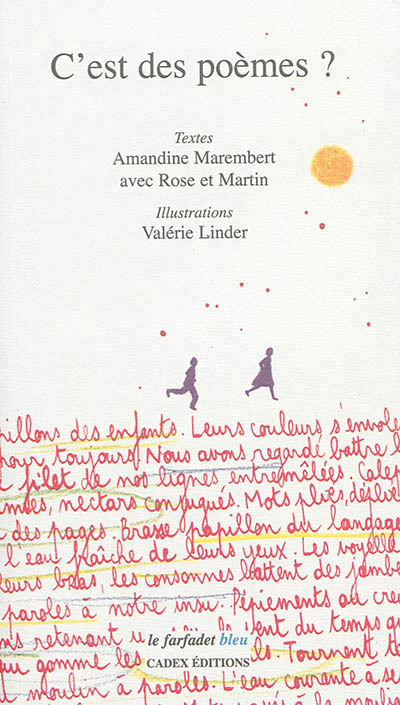 C'est des poèmes ?
Textes
Amandine Marembert
avec Rose et Martin
Illustrations
Valérie Linder
pillons des enfants. Leurs couleurs s'envole
pour toujours. Nous avons regardé battre l
filet de nos lignes entremêlées. Calep
nectars conjugués. Mots pliés, déplié
des pages. Brasse papillon du langage
l'eau fraîche de leurs yeux. Les voyelle
leurs bras, les consonnes battent des jambe
paroles à notre insu. Pépiements au creu
ns retenant u l du vent du temps qu
qui gomme les ls. Tournent t
moulin à paroles. L'eau courante à se
le farfadet bleu
CADEX ÉDITIONS